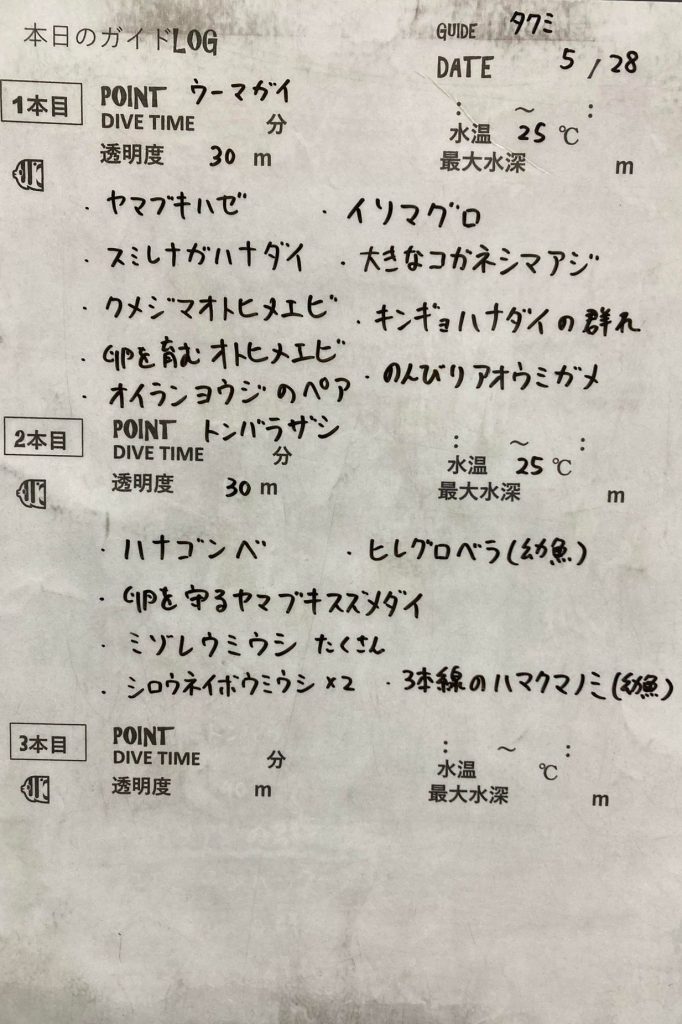 本日のガイドLOG
GUIDE タクミ
DATE 5/28
1本目 POINT ウーマガイ
DIVE TIME 分 : ～ :
透明度 30 m 水温 25 ℃
最大水深 m
・ヤマブキハゼ ・イソマグロ
・スミレナガハナダイ ・大きなコガネシマアジ
・クメジマオトヒメエビ ・キンギョハナダイの群れ
・卵を育むオトヒメエビ ・のんびりアオウミガメ
・オイランヨウジのペア
2本目 POINT トンバラザシ
DIVE TIME 分 : ～ :
透明度 30 m 水温 25 ℃
最大水深 m
・ハナゴンベ ・ヒレグロベラ(幼魚)
・卵を守るヤマブキスズメダイ
・ミゾレウミウシ たくさん
・シロウネイボウミウシ×2 ・3本線のハマクマノミ(幼魚)
3本目 POINT
DIVE TIME 分 : ～ :
透明度 m 水温 ℃
最大水深 m